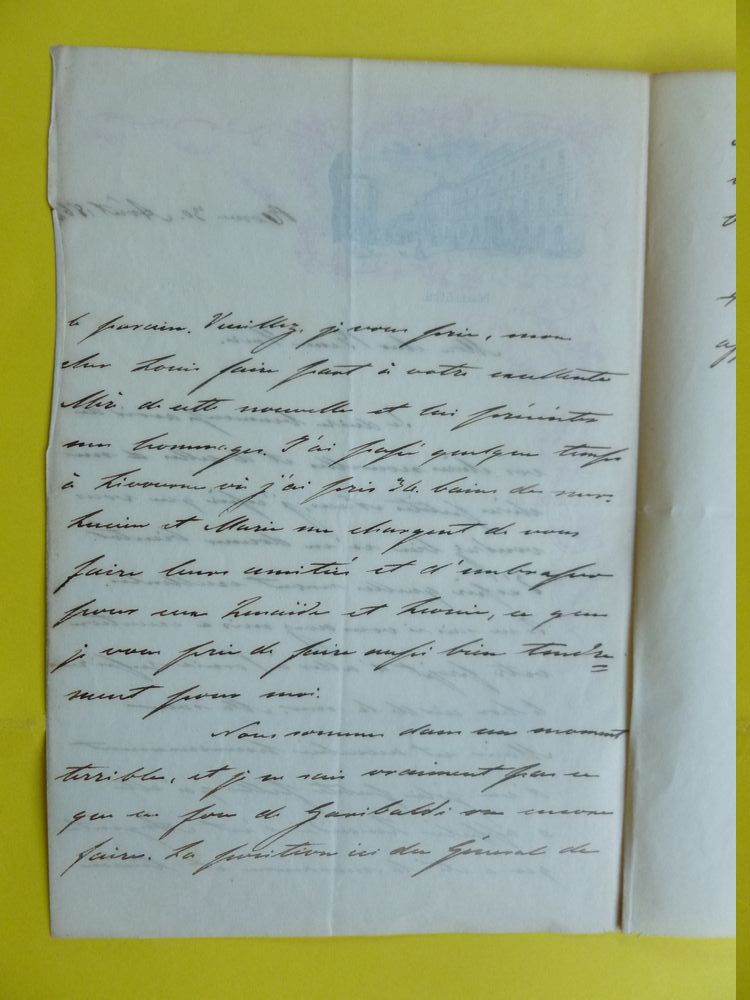 le parain. Veuillez, je vous prie, mon
cher Louis faire part à votre excellente
Mère de cette nouvelle et lui présenter
mes hommages. J'ai passé quelque temps
à Livourne où j'ai pris 34 bains de mer.
Lucien et Marie me chargent de vous
faire leurs amitiés et d'embrasser
pour eux Zénaïde et Léonie, ce que
je vous prie de faire aussi bien tendre=
ment pour moi.
Nous sommes dans un moment
terrible, et je ne sais vraiment pas ce
que ce fou de Garibaldi va encore
faire. La position ici du Général de